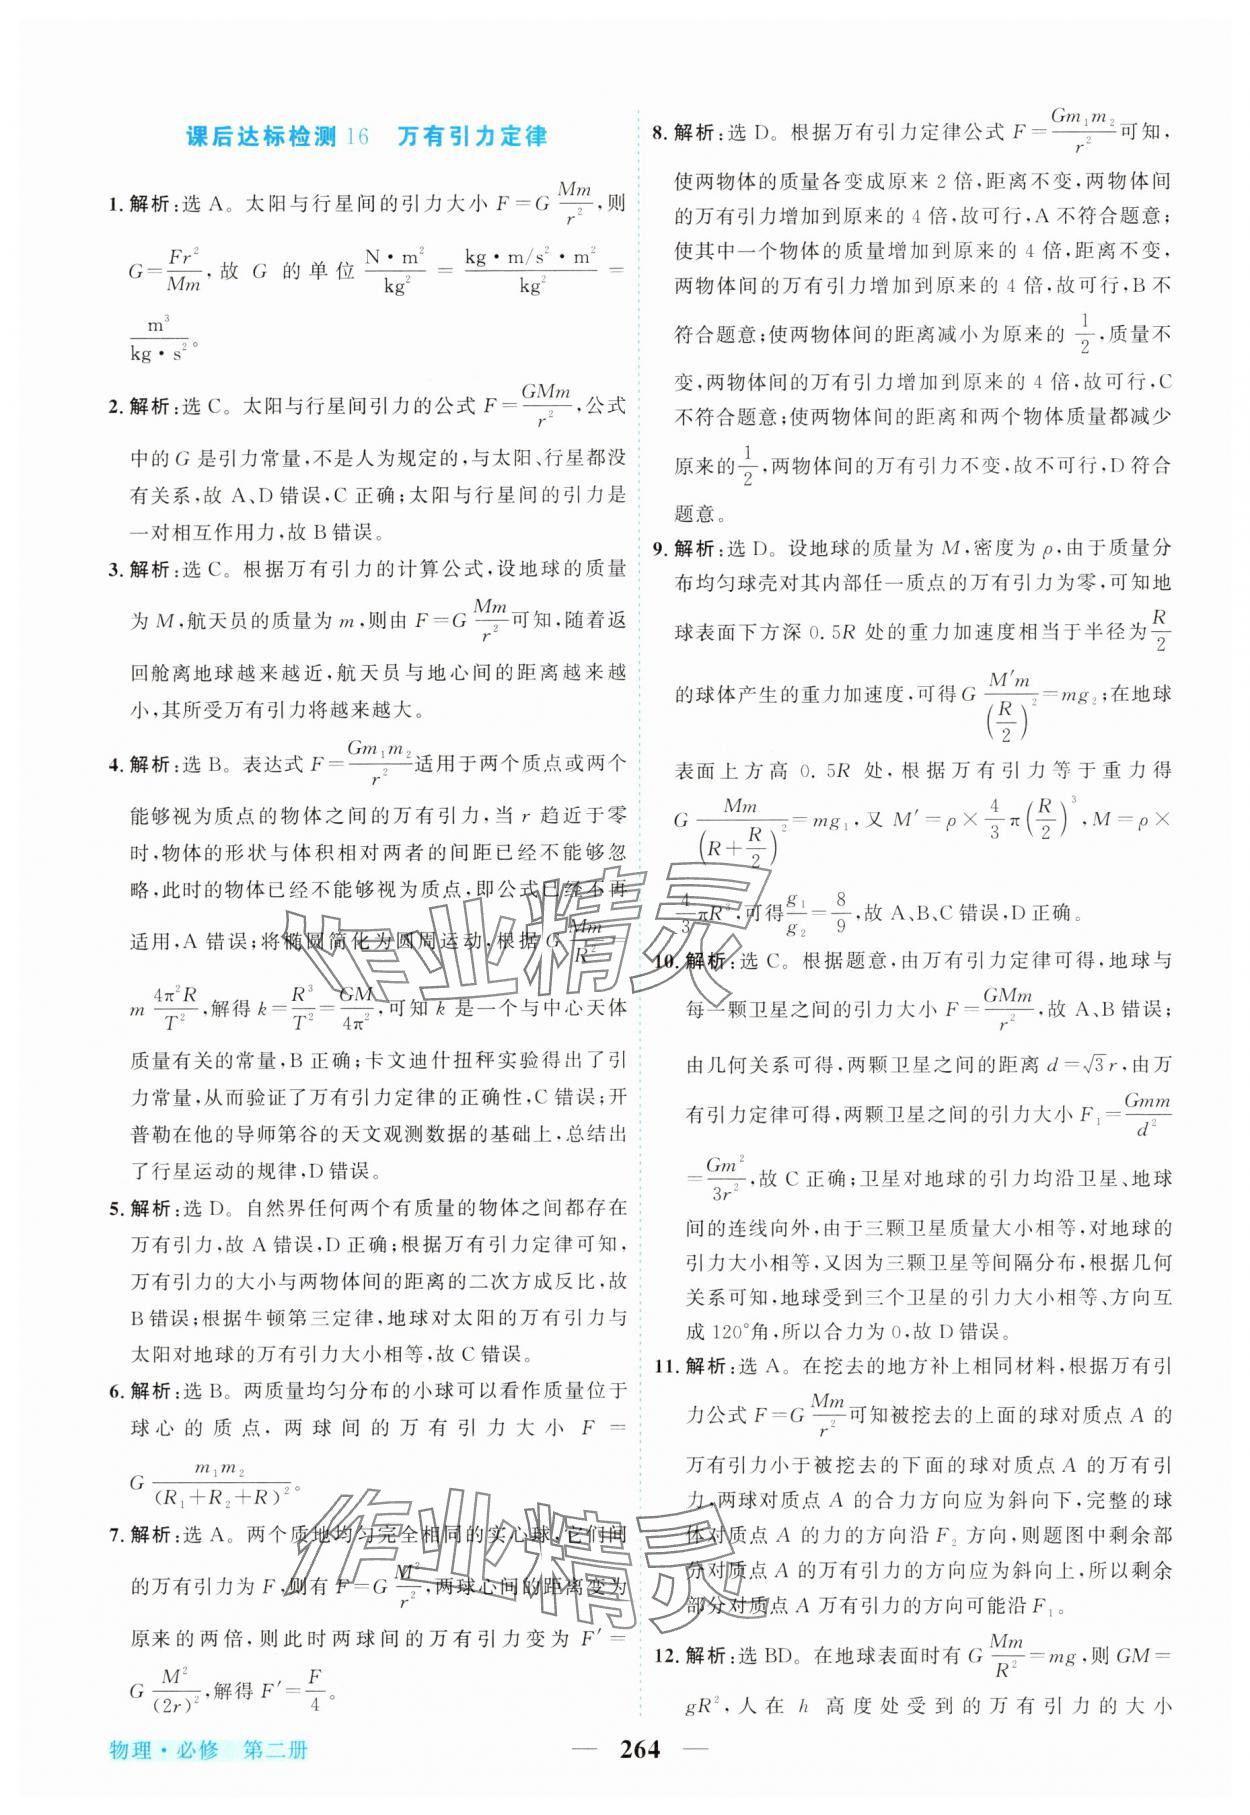 课后达标检测16　万有引力定律
1. 解析:选 A。太阳与行星间的引力大小 F=G\frac{Mm}{r^2},则
G=\frac{Fr^2}{Mm},故 G 的单位 \frac{N·m^2}{kg^2} = \frac{kg·m/s^2·m^2}{kg^2} =
\frac{m^3}{kg·s^2}。
2. 解析:选 C。太阳与行星间引力的公式 F=\frac{GMm}{r^2},公式
中的 G 是引力常量,不是人为规定的,与太阳、行星都没
有关系,故 A、D 错误,C 正确;太阳与行星间的引力是
一对相互作用力,故 B 错误。
3. 解析:选 C。根据万有引力的计算公式,设地球的质量
为 M,航天员的质量为 m,则由 F=G\frac{Mm}{r^2}可知,随着返
回舱离地球越来越近,航天员与地心间的距离越来越
小,其所受万有引力将越来越大。
4. 解析:选 B。表达式 F=\frac{Gm_1m_2}{r^2}适用于两个质点或两个
能够视为质点的物体之间的万有引力,当 r 趋近于零
时,物体的形状与体积相对两者的间距已经不能够忽
略,此时的物体已经不能够视为质点,即公式已经不再
适用,A 错误;将椭圆简化为圆周运动,根据 G\frac{Mm}{R^2}=
m\frac{4π^2R}{T^2},解得 k=\frac{R^3}{T^2}=\frac{GM}{4π^2},可知 k 是一个与中心天体
质量有关的常量,B 正确;卡文迪什扭秤实验得出了引
力常量,从而验证了万有引力定律的正确性,C 错误;开
普勒在他的导师第谷的天文观测数据的基础上,总结出
了行星运动的规律,D 错误。
5. 解析:选 D。自然界任何两个有质量的物体之间都存在
万有引力,故 A 错误,D 正确;根据万有引力定律可知,
万有引力的大小与两物体间的距离的二次方成反比,故
B 错误;根据牛顿第三定律,地球对太阳的万有引力与
太阳对地球的万有引力大小相等,故 C 错误。
6. 解析:选 B。两质量均匀分布的小球可以看作质量位于
球心的质点,两球间的万有引力大小 F=
G\frac{m_1m_2}{(R_1+R_2+R)^2}。
7. 解析:选 A。两个质地均匀完全相同的实心球,它们间
的万有引力为 F,则有 F=G\frac{M^2}{r^2},两球心间的距离变为
原来的两倍,则此时两球间的万有引力变为 F′=
G\frac{M^2}{(2r)^2},解得 F′=\frac{F}{4}。
8. 解析:选 D。根据万有引力定律公式 F=\frac{Gm_1m_2}{r^2}可知,
使两物体的质量各变成原来 2 倍,距离不变,两物体间
的万有引力增加到原来的 4 倍,故可行,A 不符合题意;
使其中一个物体的质量增加到原来的 4 倍,距离不变,
两物体间的万有引力增加到原来的 4 倍,故可行,B 不
符合题意;使两物体间的距离减小为原来的\frac{1}{2},质量不
变,两物体间的万有引力增加到原来的 4 倍,故可行,C
不符合题意;使两物体间的距离和两个物体质量都减少
原来的\frac{1}{2},两物体间的万有引力不变,故不可行,D 符合
题意。
9. 解析:选 D。设地球的质量为 M,密度为 ρ,由于质量分
布均匀球壳对其内部任一质点的万有引力为零,可知地
球表面下方深 0.5R 处的重力加速度相当于半径为\frac{R}{2}
的球体产生的重力加速度,可得 G\frac{M′m}{(\frac{R}{2})^2}=mg_2;在地球
表面上方高 0.5R 处,根据万有引力等于重力得
G\frac{Mm}{(R+\frac{R}{2})^2}=mg_1,又 M′=ρ×\frac{4}{3}π(\frac{R}{2})^3,M=ρ×
\frac{4}{3}πR^3,可得\frac{g_1}{g_2}=\frac{8}{9},故 A、B、C 错误,D 正确。
10. 解析:选 C。根据题意,由万有引力定律可得,地球与
每一颗卫星之间的引力大小 F=\frac{GMm}{r^2},故 A、B 错误;
由几何关系可得,两颗卫星之间的距离 d=√3r,由万
有引力定律可得,两颗卫星之间的引力大小 F_1=\frac{Gmm}{d^2}
=\frac{Gm^2}{3r^2},故 C 正确;卫星对地球的引力均沿卫星、地球
间的连线向外,由于三颗卫星质量大小相等,对地球的
引力大小相等,又因为三颗卫星等间隔分布,根据几何
关系可知,地球受到三个卫星的引力大小相等、方向互
成 120°角,所以合力为 0,故 D 错误。
11. 解析:选 A。在挖去的地方补上相同材料,根据万有引
力公式 F=G\frac{Mm}{r^2}可知被挖去的上面的球对质点 A 的
万有引力小于被挖去的下面的球对质点 A 的万有引
力,两球对质点 A 的合力方向应为斜向下,完整的球
体对质点 A 的力的方向沿 F_2 方向,则题图中剩余部
分对质点 A 的万有引力的方向应为斜向上,所以剩余
部分对质点 A 的万有引力的方向可能沿 F_1。
12. 解析:选 BD。在地球表面时有 G\frac{Mm}{R^2}=mg,则 GM=
gR^2,人在 h 高度处受到的万有引力的大小
作业精灵
作业精灵
物理·必修　第二册
— 264 —